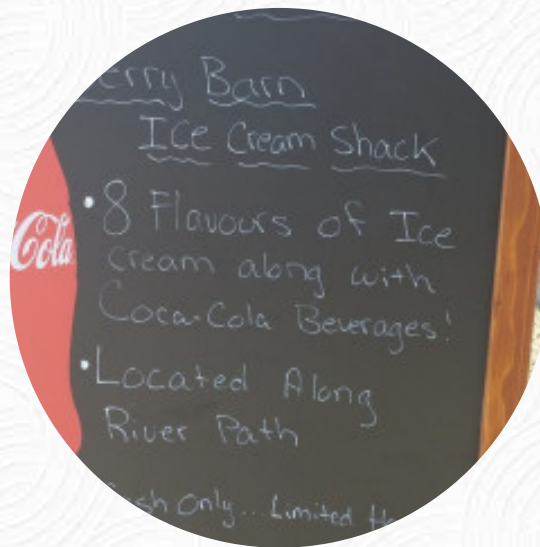 Barn
Ice Cream Shack
• 8 Flavours of Ice
cream along with
Coca-Cola Beverages!
• Located Along
River Path
Only... Limited
Cola